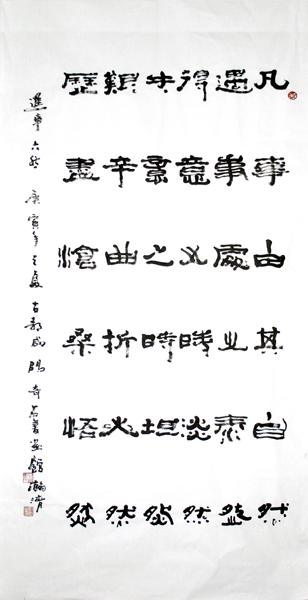 凡事由其自然
遇事處之泰然
得意之時淡然
失意之時坦然
艱辛曲折必然
歷盡滄桑悟然
六然 庚寅年之夏 古都咸陽奇石書画館